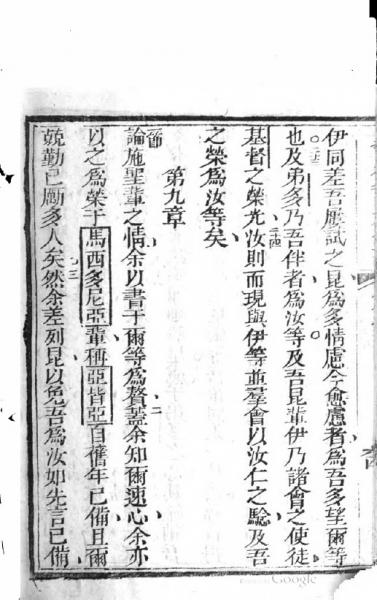 伊同差吾屢試之昆為多情慮今愈慮者為吾多望爾等
也二三及弟多乃吾伴者為汝等及吾昆輩伊乃諸會之使徒
基督之榮光二四汝則而現與伊等並羣會以汝仁之騐及吾
之榮為汝等矣
第九章
一節論施聖輩之情余以書于爾等為贅二蓋余知爾速心余亦
以之為榮于馬西多尼亞輩稱亞皆亞自舊年已備且爾
兢勤已勵多人矣三然余差列昆以免吾為汝如先言已備
Google